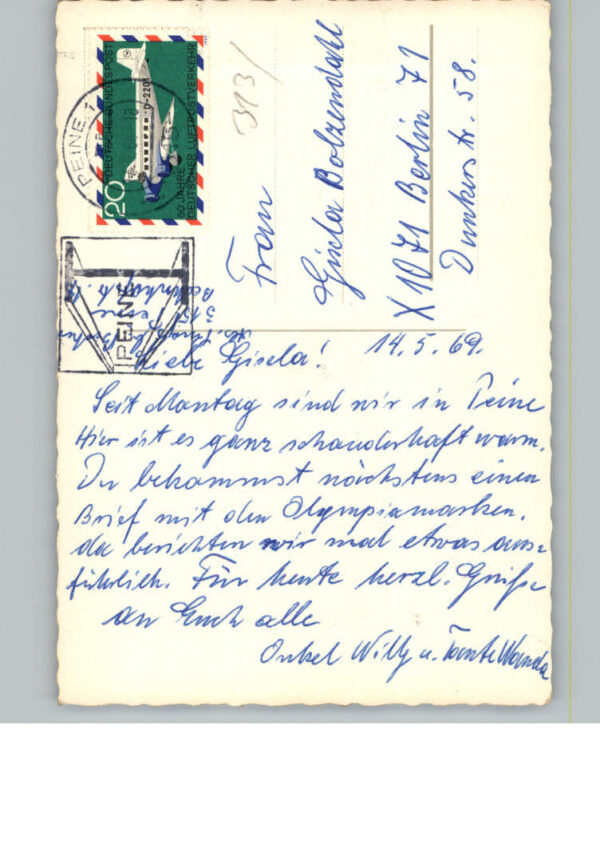 20
DEUTSCHE BUNDESPOST
D-2201
50 JAHRE
DEUTSCHER LUFTPOSTVERKEHR
PEINE 1
18
PEINE
313/
Frau
Gisela Bolzendahl
X 1071 Berlin 71
Dunkerstr. 58.
315 Peine
14.5.69.
Liebe Gisela!
Seit Montag sind wir in Peine
Hier ist es ganz schauderhaft warm.
Du bekommst nächstens einen
Brief mit den Olympiamarken.
da berichten wir mal etwas aus=
führlich. Für heute herzl. Grüße
an Euch alle
Onkel Willy u. Tante Wanda